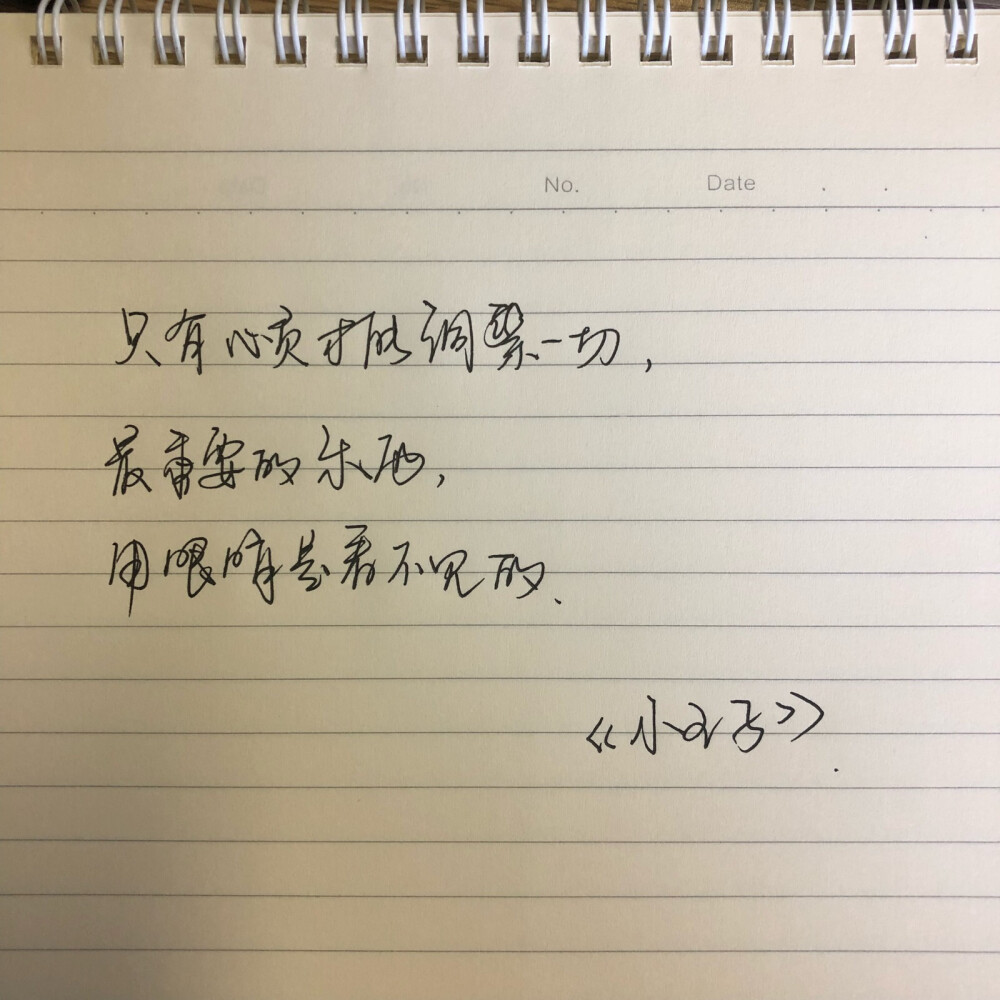 No. Date . .
只有心灵才能洞察一切,
最重要的东西,
用眼睛是看不见的.
《小王子》.